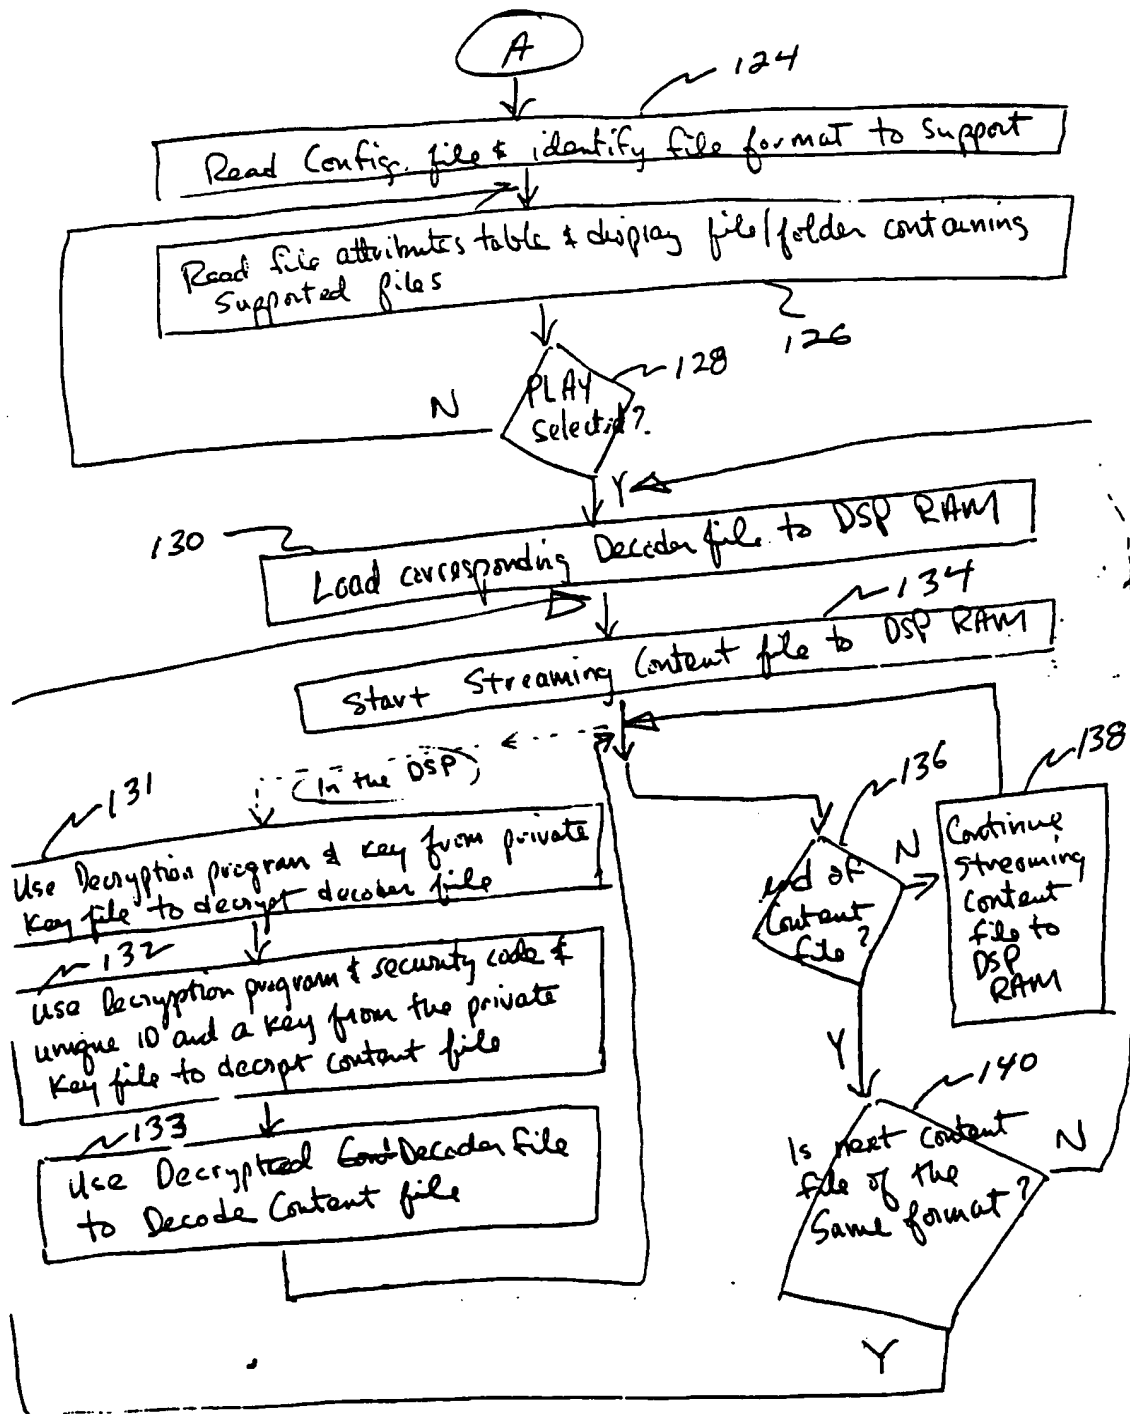 A
124
Read Config. file & identify file format to support
Read file attributes table & display file/folder containing
supported files
126
128
PLAY
selected?
N
Y
130
Load corresponding Decoder file to DSP RAM
134
Start Streaming Content file to DSP RAM
(In the DSP)
131
Use Decryption program & key from private
key file to decrypt decoder file
132
Use Decryption program & security code &
unique ID and a key from the private
key file to decrpt content file
133
Use Decrypted Decoder file
to Decode Content file
136
end of
Content
file?
N
138
Continue
streaming
Content
file to
DSP
RAM
Y
140
Is next content
file of the
Same format?
N
Y